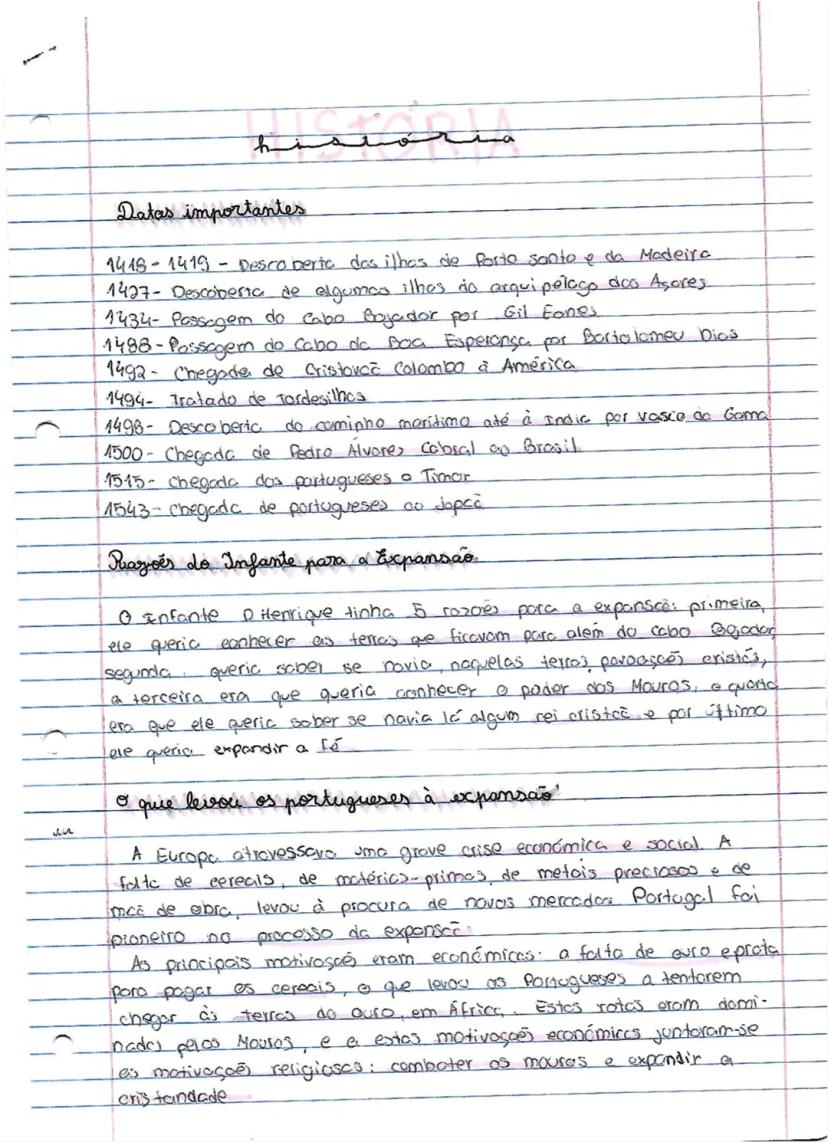 HISTÓRIA
história
Datas importantes
1418-1419 - Descoberta das ilhas de Porto Santo e da Madeira
1427- Descoberta de algumas ilhas do arquipélago dos Açores
1434- Passagem do Cabo Bojador por Gil Eanes
1488- Passagem do Cabo da Boa Esperança por Bartolomeu Dias
1492- Chegada de Cristovão Colombo à América
1494- Tratado de Tordesilhas
1498- Descoberta do caminho marítimo até à India por Vasco da Gama
1500- Chegada de Pedro Álvares Cabral ao Brasil
1515- Chegada dos portugueses a Timor
1543- Chegada de portugueses ao Japão
Razões do Infante para a Expansão
O Infante D.Henrique tinha 5 razões para a expansão: primeira,
ele queria conhecer as terras que ficavam para alem do cabo Bojador,
segunda, queria saber se havia, naquelas terras, povoações cristãs,
a terceira era que queria conhecer o poder dos Mouros, a quarta
era que ele queria saber se havia lá algum rei cristão e por último
ele queria expandir a fé
O que levou os portugueses à expansão
A Europa atravessava uma grave crise económica e social. A
falta de cereais, de matérias-primas, de metais preciosos e de
mão de obra, levou à procura de novos mercados. Portugal foi
pioneiro no processo da expansão.
As principais motivações eram económicas: a falta de ouro e prata
para pagar os cereais, o que levou os Portugueses a tentarem
chegar às terras do ouro, em África. Estas rotas eram domi-
nadas pelos Mouros, e a estas motivações económicas juntaram-se
as motivações religiosas: combater os mouros e expandir a
cristandade